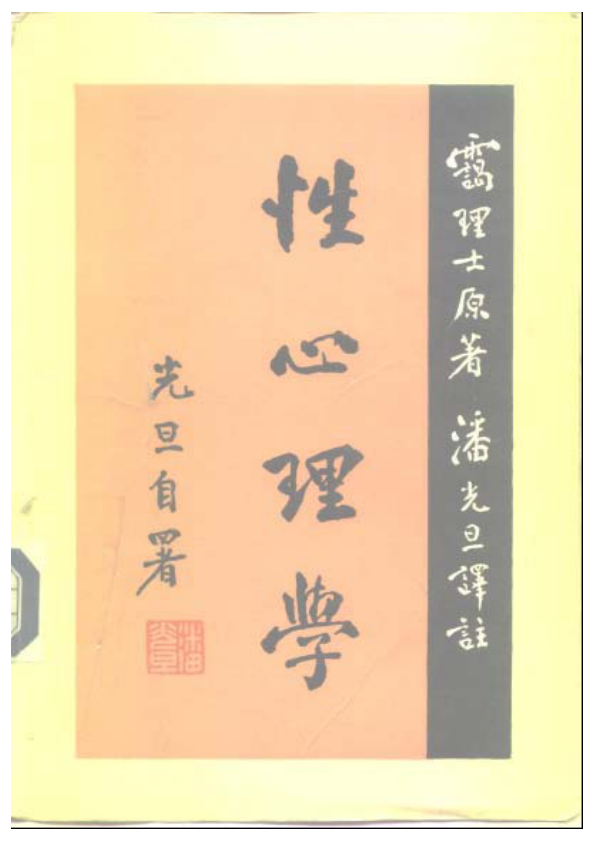 靄理士原著 潘光旦譯註
性心理學
光旦自署
潘光旦